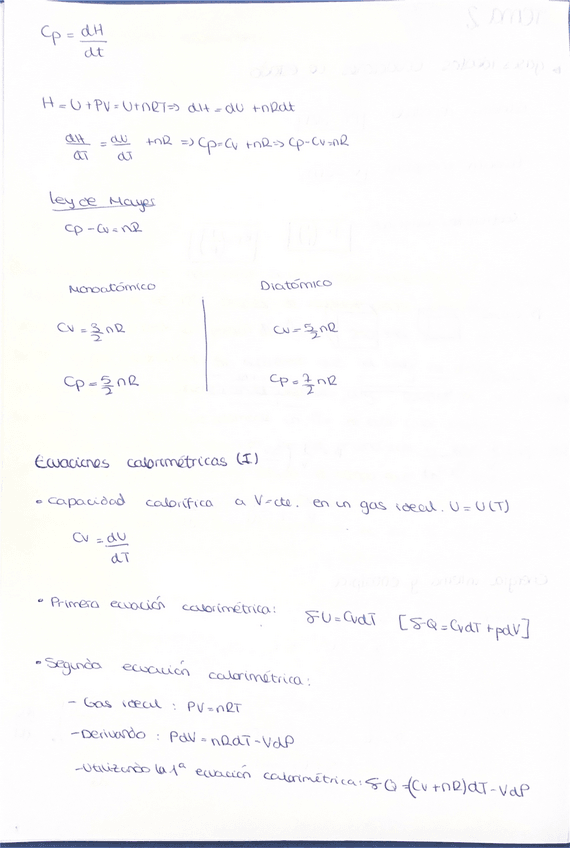 Cp = dH/dt
H = U + PV = U + nRT => dH = dU + nRdt
dH/dT = dU/dT + nR => Cp = Cv + nR => Cp - Cv = nR
Ley de Mayer
Cp - Cv = nR
Monoatómico
Diatómico
Cv = 3/2 nR
Cv = 5/2 nR
Cp = 5/2 nR
Cp = 7/2 nR
Ecuaciones calorimétricas (I)
• Capacidad calorífica a V=cte. en un gas ideal. U = U(T)
Cv = dU/dT
• Primera ecuación calorimétrica: δU = CvdT [δQ = CvdT + pdV]
• Segunda ecuación calorimétrica:
- Gas ideal : PV = nRT
- Derivando : PdV = nRdT - VdP
- Utilizando la 1ª ecuación calorimétrica: δQ = (Cv + nR)dT - VdP